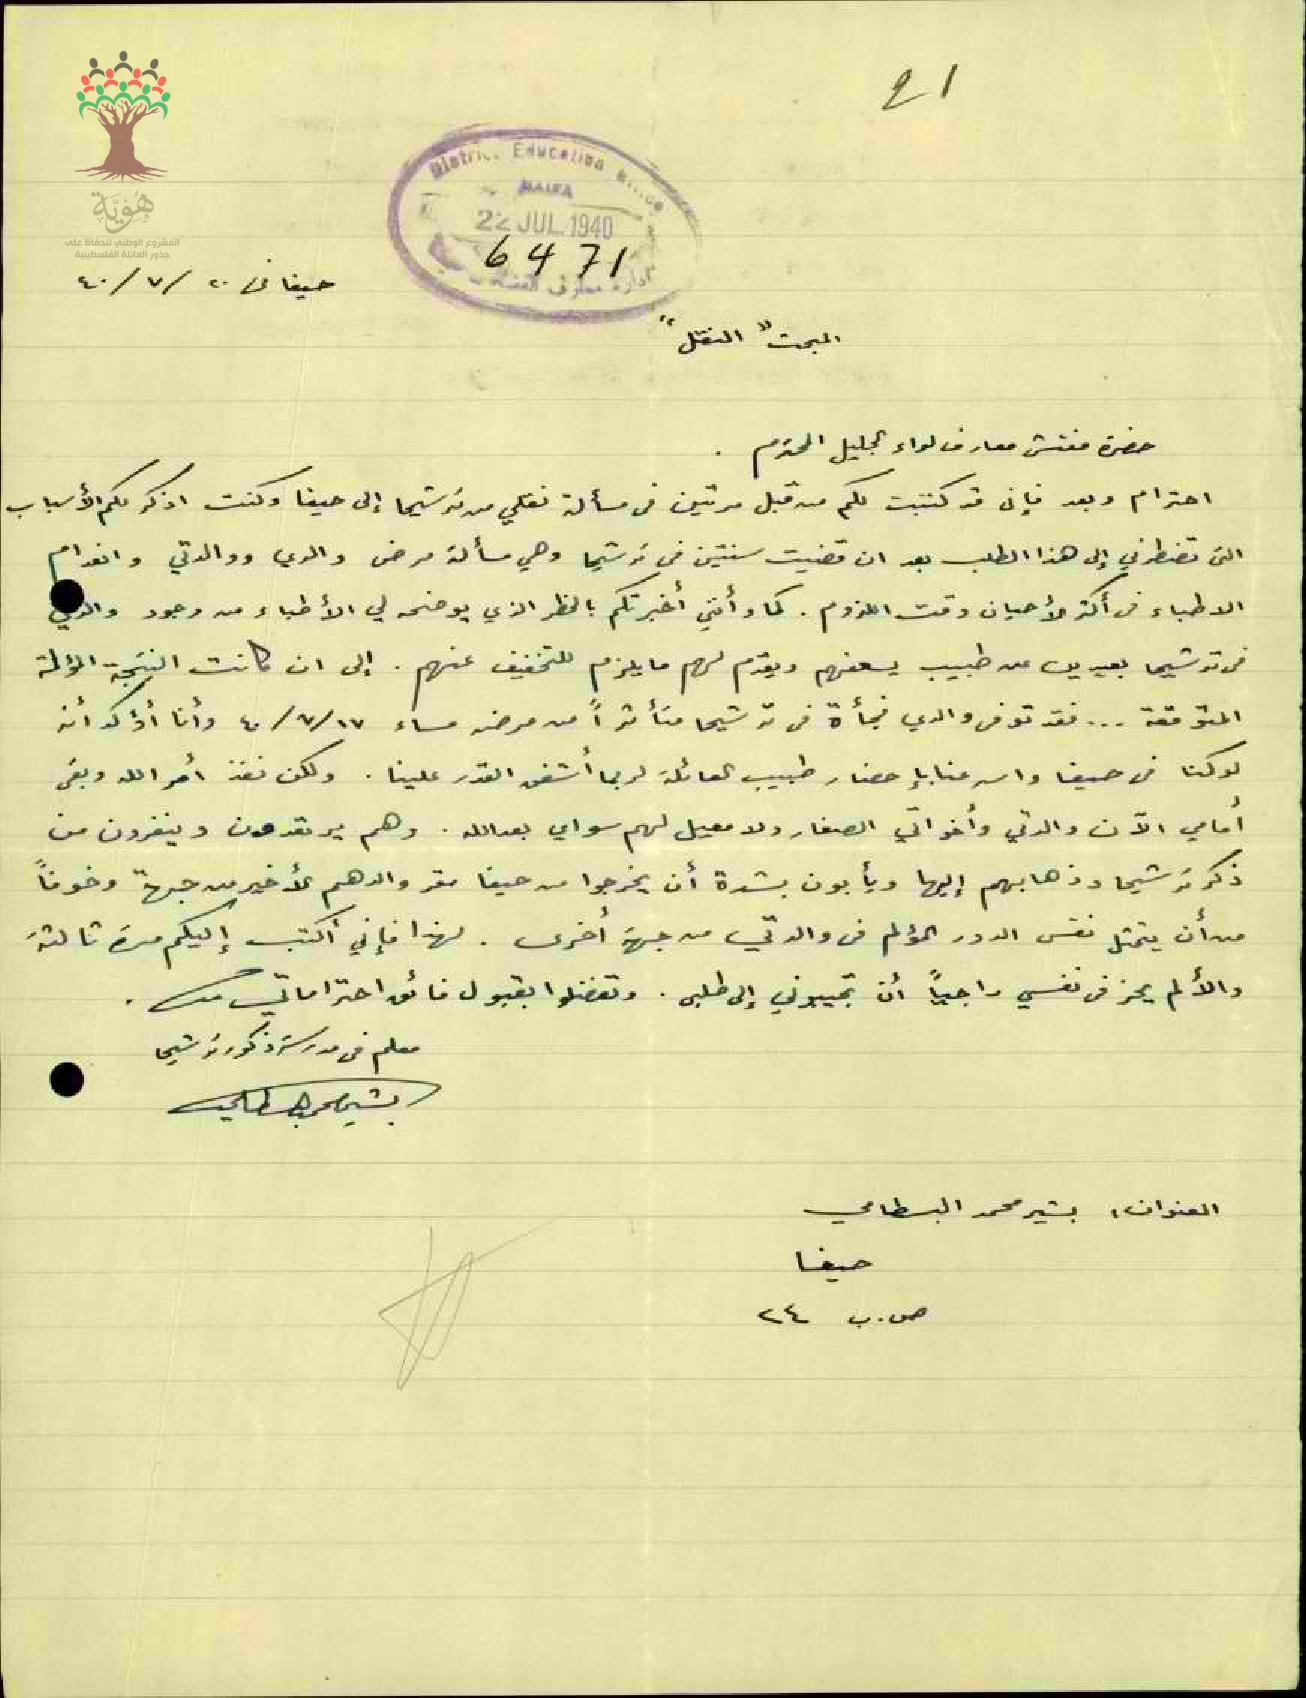 21
هُوِيَّة
المشروع الوطني للحفاظ على
جذور العائلة الفلسطينية
District Education Office
HAIFA
22 JUL 1940
6471
ادارة معارف
حيفا في ٢٠/٧/٤٠
المبحث "النقل"
حضرة مفتش معارف لواء الجليل المحترم .
احترام وبعد فإني قد كتبت لكم من قبل مرتين في مسألة نقلي من ترشيحا إلى حيفا وكنت اذكر لكم الأسباب
التي تضطرني إلى هذا الطلب بعد ان قضيت سنتين في ترشيحا وهي مسألة مرض والدي ووالدتي وانعدام
الاطباء في أكثر الأحيان وقت اللزوم . كما وأنني أخبرتكم بالخطر الذي يوضحه لي الأطباء من وجود والدي
في ترشيحا بعيدين عن طبيب يسعفهم ويقدم لهم ما يلزم للتخفيف عنهم . إلى ان كانت النتيجة المؤلمة
المتوقعة ... فقد توفى والدي فجأة في ترشيحا متأثراً من مرضه مساء ١٧/٧/٤٠ وأنا أؤكد أنه
لو كنا في حيفا واسرعنا بإحضار طبيب العائلة لربما أشفق القدر علينا . ولكن نفذ أمر الله وبقي
أمامي الآن والدتي وأخواتي الصغار ولا معيل لهم سواي بعد الله . وهم يرتعدون وينفرون من
ذكر ترشيحا وذهابهم إليها ويأبون بشدة أن يخرجوا من حيفا مقر والدهم الأخير من جهة وخوفاً
من أن يتمثل نفس الدور المؤلم في والدتي من جهة أخرى . لهذا فإني أكتب إليكم مرة ثالثة
والألم يحز في نفسي راجياً أن تجيبوني إلى طلبي . وتفضلوا بقبول فائق احتراماتي .
معلم في مدرسة ذكور ترشيحا
بشير محمد بسطامي
العنوان: بشير محمد البسطامي
حيفا
ص.ب ٢٤